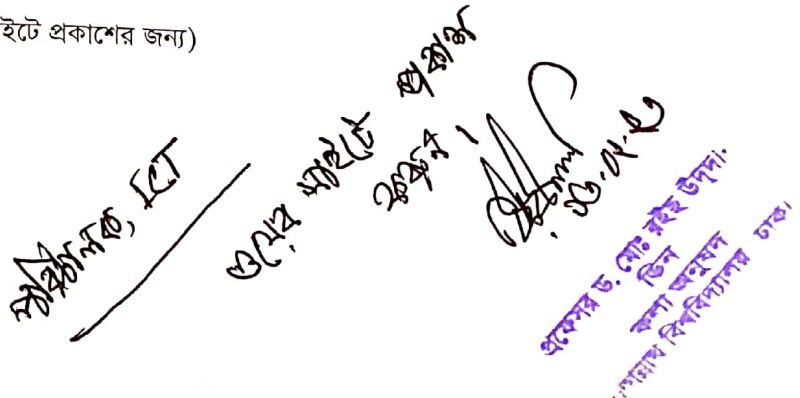 ইটে প্রকাশের জন্য)
পরিচালক, ICT
ওয়েব সাইটে প্রকাশ
করুন।
প্রফেসর ড. মোঃ রইছ উদ্দীন
ডিন
কলা অনুষদ
জগন্নাথ বিশ্ববিদ্যালয় ঢাকা।